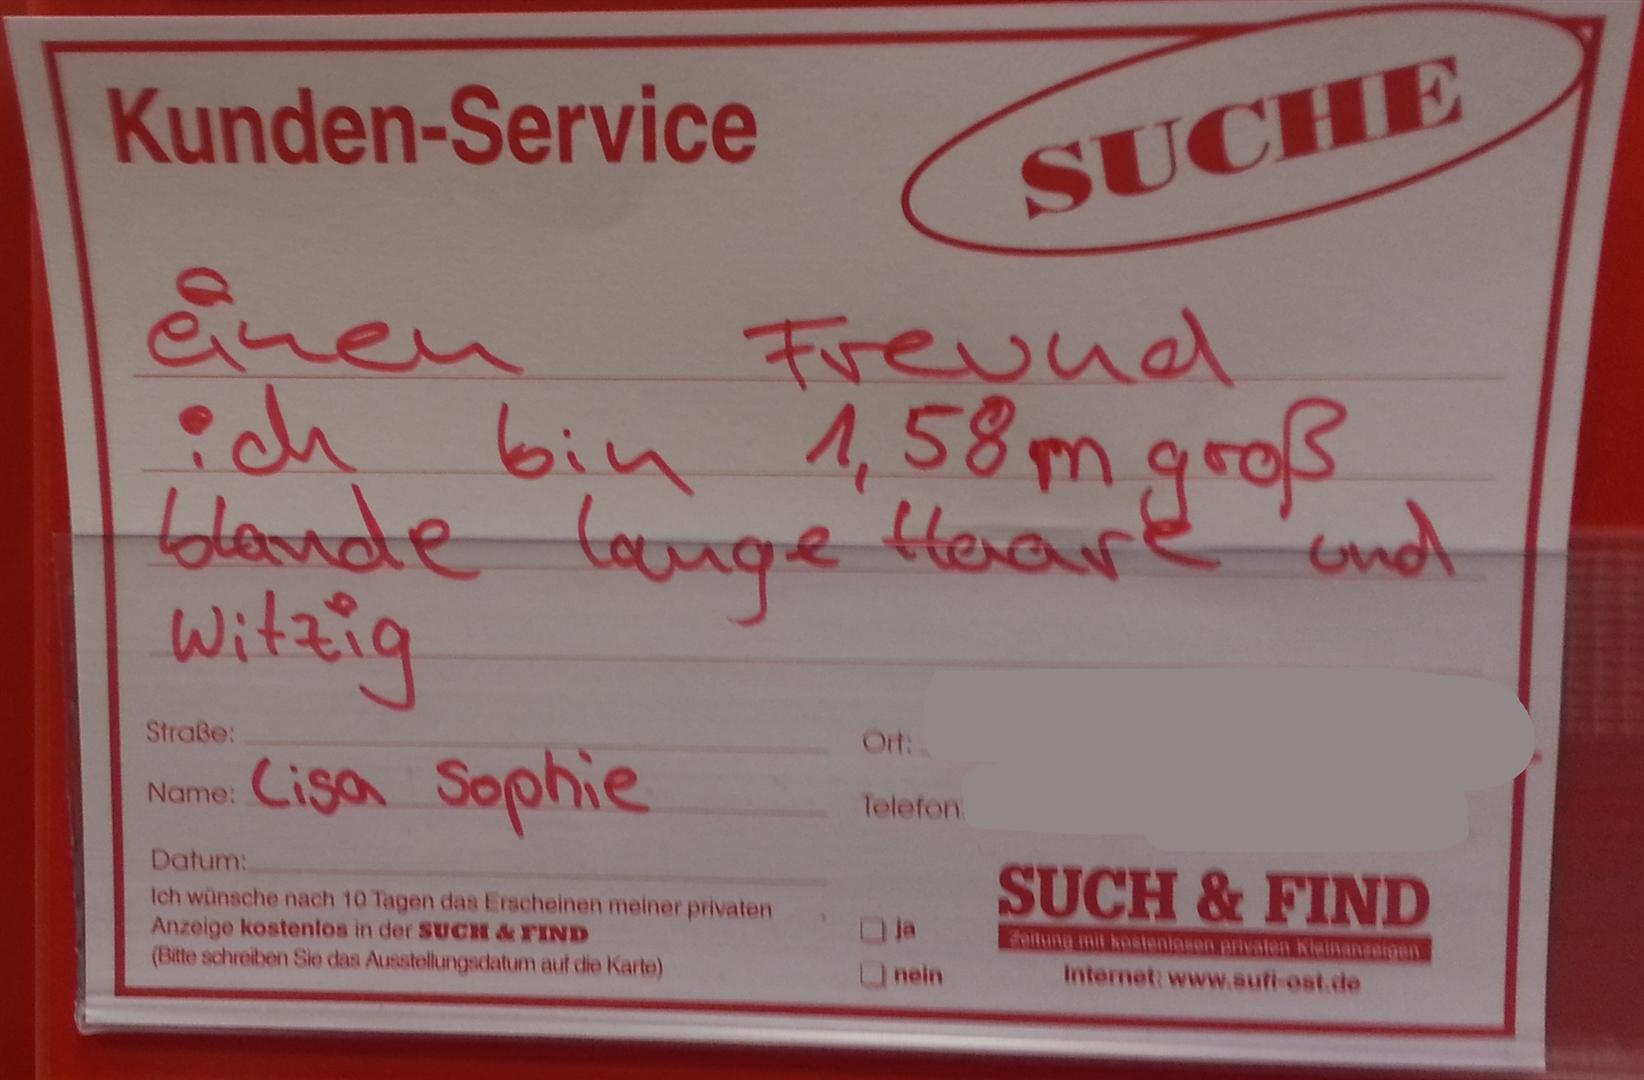 Kunden-Service
SUCHE
einen Freund
ich bin 1,58m groß
blande lange Haare und
witzig
Straße:
Ort:
Name: Lisa Sophie
Telefon
Datum:
Ich wünsche nach 10 Tagen das Erscheinen meiner privaten
Anzeige kostenlos in der SUCH & FIND
(Bitte schreiben Sie das Ausstellungsdatum auf die Karte)
ja
nein
SUCH & FIND
Zeitung mit kostenlosen privaten Kleinanzeigen
Internet: www.sufi-ost.de